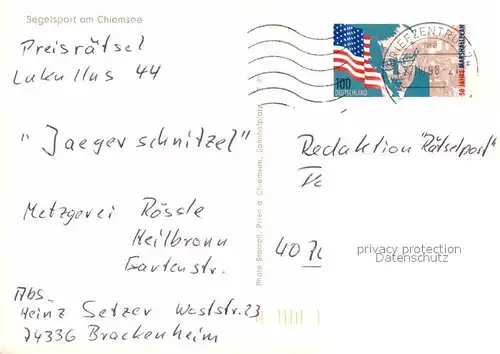 Segelsport am Chiemsee
Preisrätsel
Lukullus 44
"Jaegerschnitzel"
Metzgerei Rössle
Heilbronn
Gartenstr.
Abs.
Heinz Setzer Weststr. 23
74336 Brackenheim
Photo Stampfl, Prien a Chiemsee, Bahnhofplatz
BRIEFZENTRUM
100
DEUTSCHLAND
50 JAHRE MARSHALLPLAN
Redaktion "Rätselpost"
40
privacy protection
Datenschutz